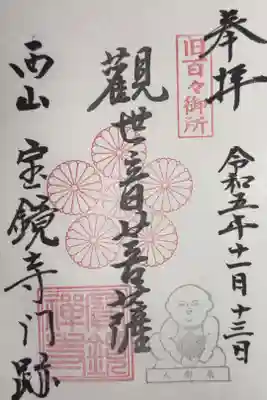 奉拝
旧百々御所
令和五年十一月十三日
觀世音菩薩
西山 宝鏡寺门跡
寳鏡禅寺